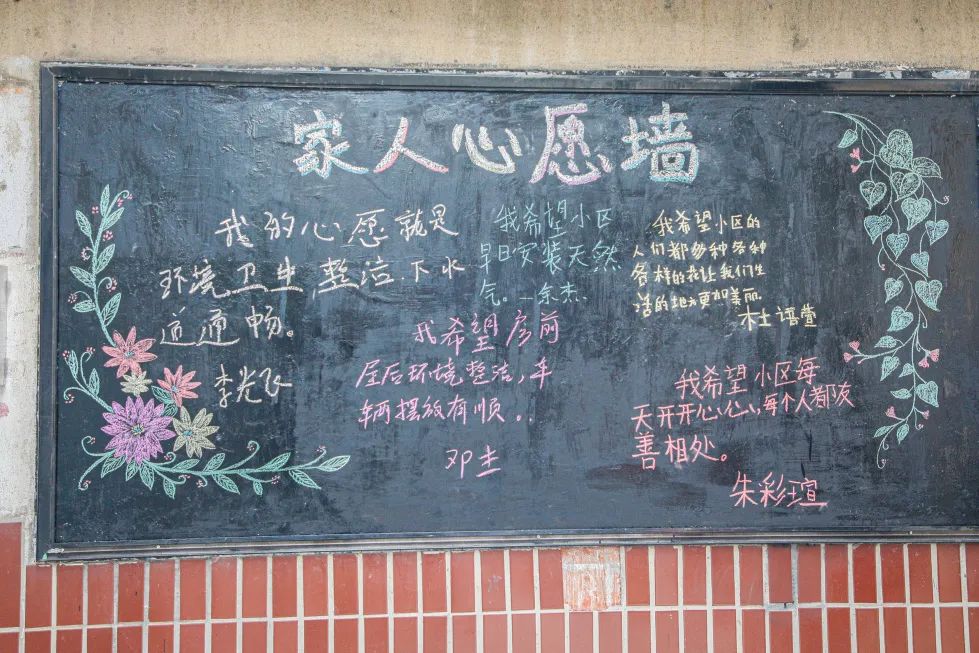 家人心愿墙
我的心愿就是
环境卫生整洁.下水
道通畅。
李光飞
我希望小区
早日安装天然
气。—余杰.
我希望小区的
人们都多种各种
各样的花让我们生
活的地方更加美丽.
我希望房前
屋后环境整洁,车
辆摆放有顺。.
邓
我希望小区每
天开开心心,每个人都友
善相处。
朱彩瑄